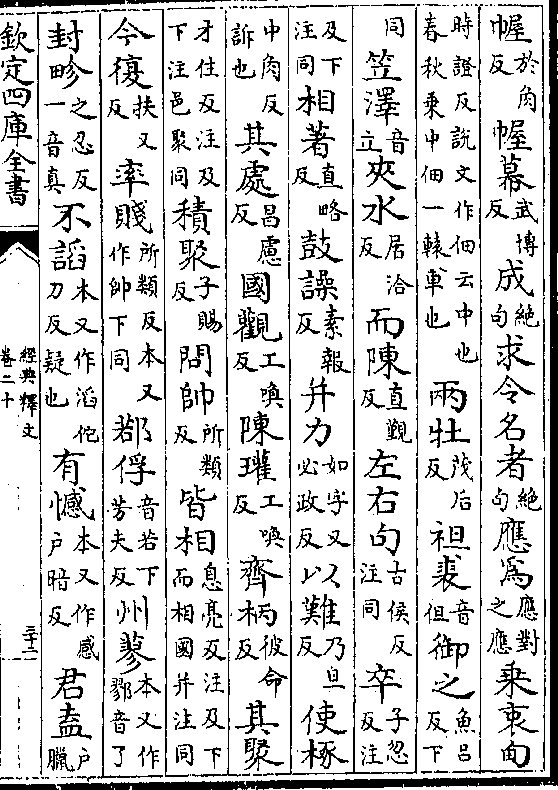 幄於角反幄幕武博反成絶句求令名者絶句應爲應對之應乗衷甸
時證反説文作佃云中也春秋乗中佃一轅車也兩牡茂后反袒裘音但御之魚吕反下
同笠澤音立夾水居洽反而陳直覲反左右句古侯反注同卒子忽反注
及下注同相著直略反鼓譟素報反并力如字又必政反以難乃旦反使椓
中肉反訴也其處昌慮反國觀工喚反陳瓘工喚反齊柄彼命反其聚
才住反注及下注邑聚同積聚子賜反問帥所類反皆相息亮反注及下而相國并注同
今復扶又反率賤所類反本又作帥下同鄀俘音若下芳夫反州蓼本又作鄝音了
封畛之忍反一音真不謟本又作滔佗刀反疑也有憾本又作感户暗反君盍户臘
欽定四庫全書
經典釋文
卷二十
三十二